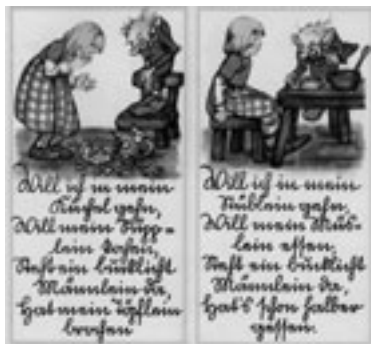 Will ich in mein
Küchel gehn,
Will mein Süpp=
lein kochen,
Steht ein bucklicht
Männlein da,
Hat mein Töpflein
brochen
Will ich in mein
Stüblein gehn,
Will mein Müs-
lein essen,
Steht ein bucklicht
Männlein da,
Hat's schon halber
gessen.